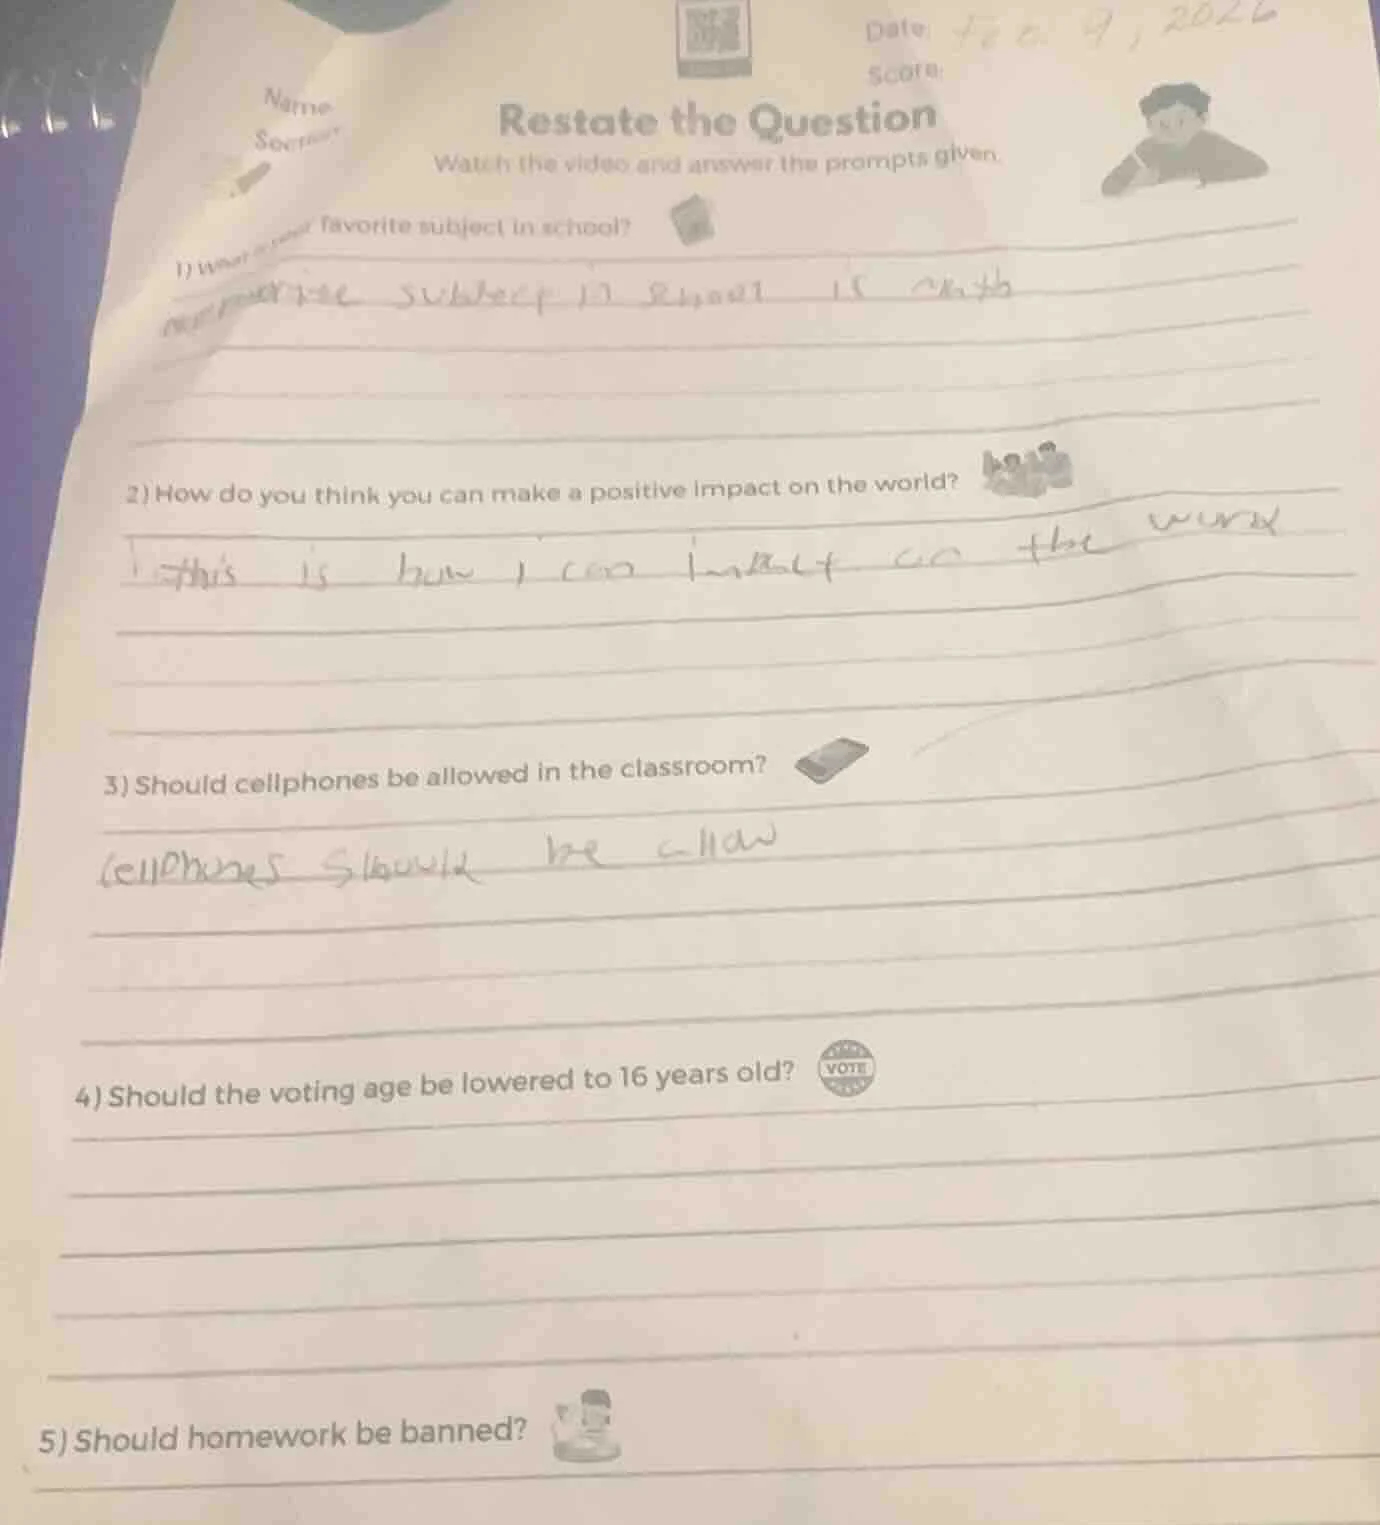 Date: Feb. 9, 2026
Score:
Name
Section
Restate the Question
Watch the video and answer the prompts given.
1) What is your favorite subject in school?
subject in school is math
2) How do you think you can make a positive impact on the world?
this is how I can impact on the world
3) Should cellphones be allowed in the classroom?
cellphones should be allow
4) Should the voting age be lowered to 16 years old?
VOTE
5) Should homework be banned?